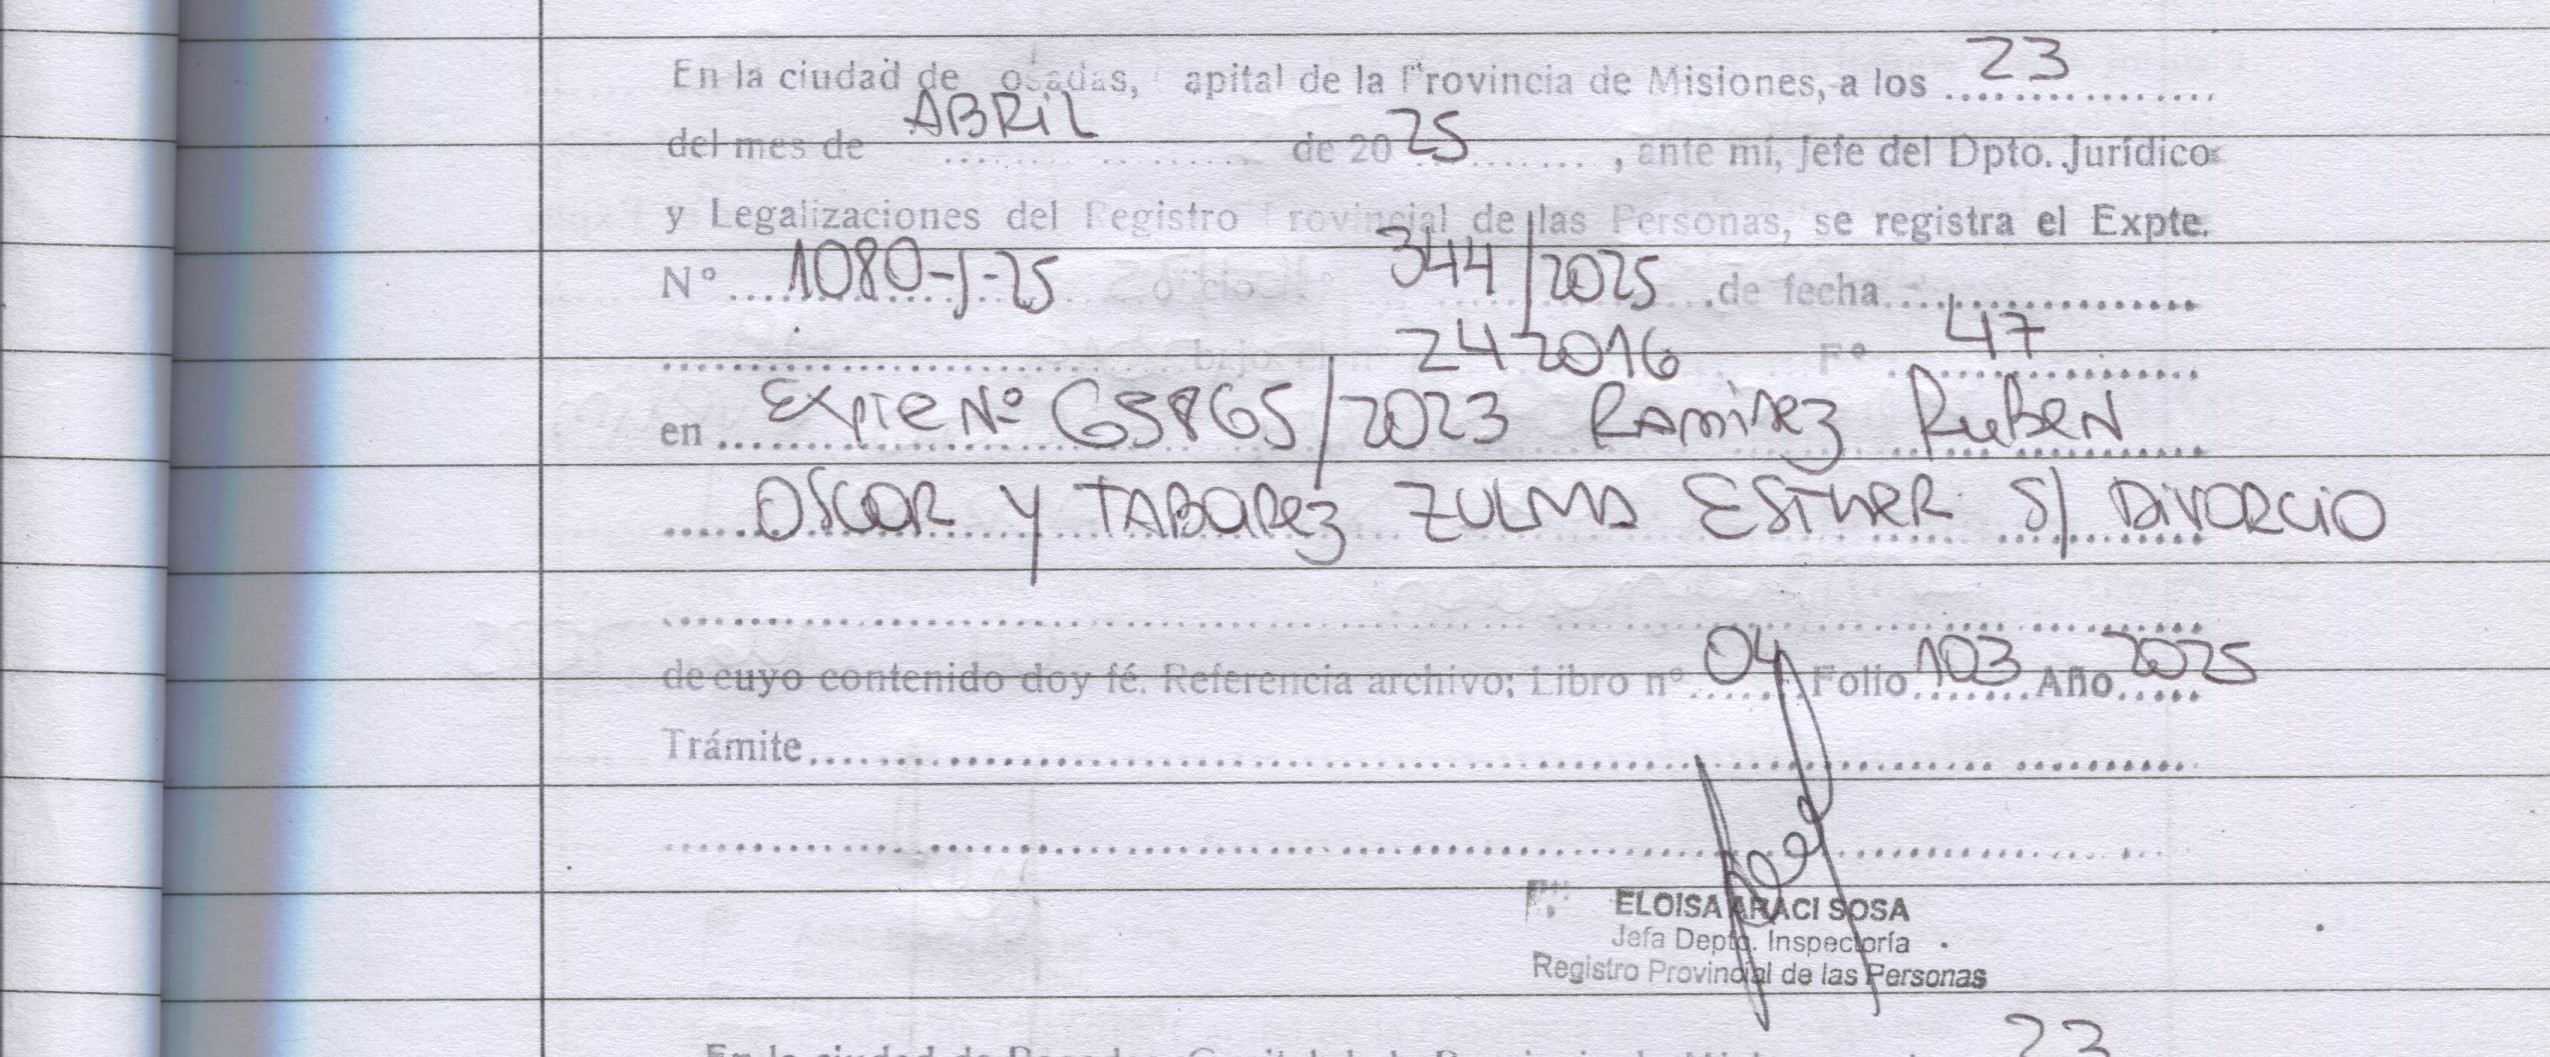 En la ciudad de osadas, apital de la Provincia de Misiones, a los 23
del mes de ABRIL de 2025, ante mí, Jefe del Dpto. Jurídico
y Legalizaciones del Registro Provincial de las Personas, se registra el Expte.
N° 1080-J-25 344/2025 de fecha
24 2016 F° 47
en Expte Nº 65865/2023 Ramirez Ruben
OSCAR Y TABAREZ ZULMA ESTHER S/ DIVORCIO
de cuyo contenido doy fé. Referencia archivo; Libro nº 04 Folio 103 Año 2025
Trámite
ELOISA ARACI SOSA
Jefa Depto. Inspectoría
Registro Provincial de las Personas
23